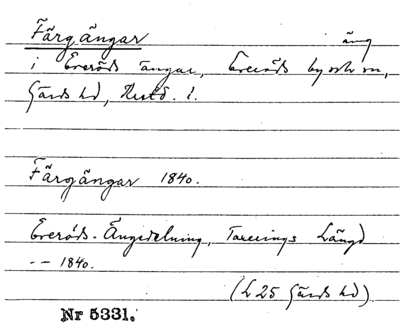 Färgängar äng
i Everöds ängar, Everöds by och sn,
Gärds hd, Krstd. l.
Färgängar 1840.
Everöds. Ängsdelning, Taxerings Längd
-- 1840.
(L 25 Gärds hd)
Nr 5331.